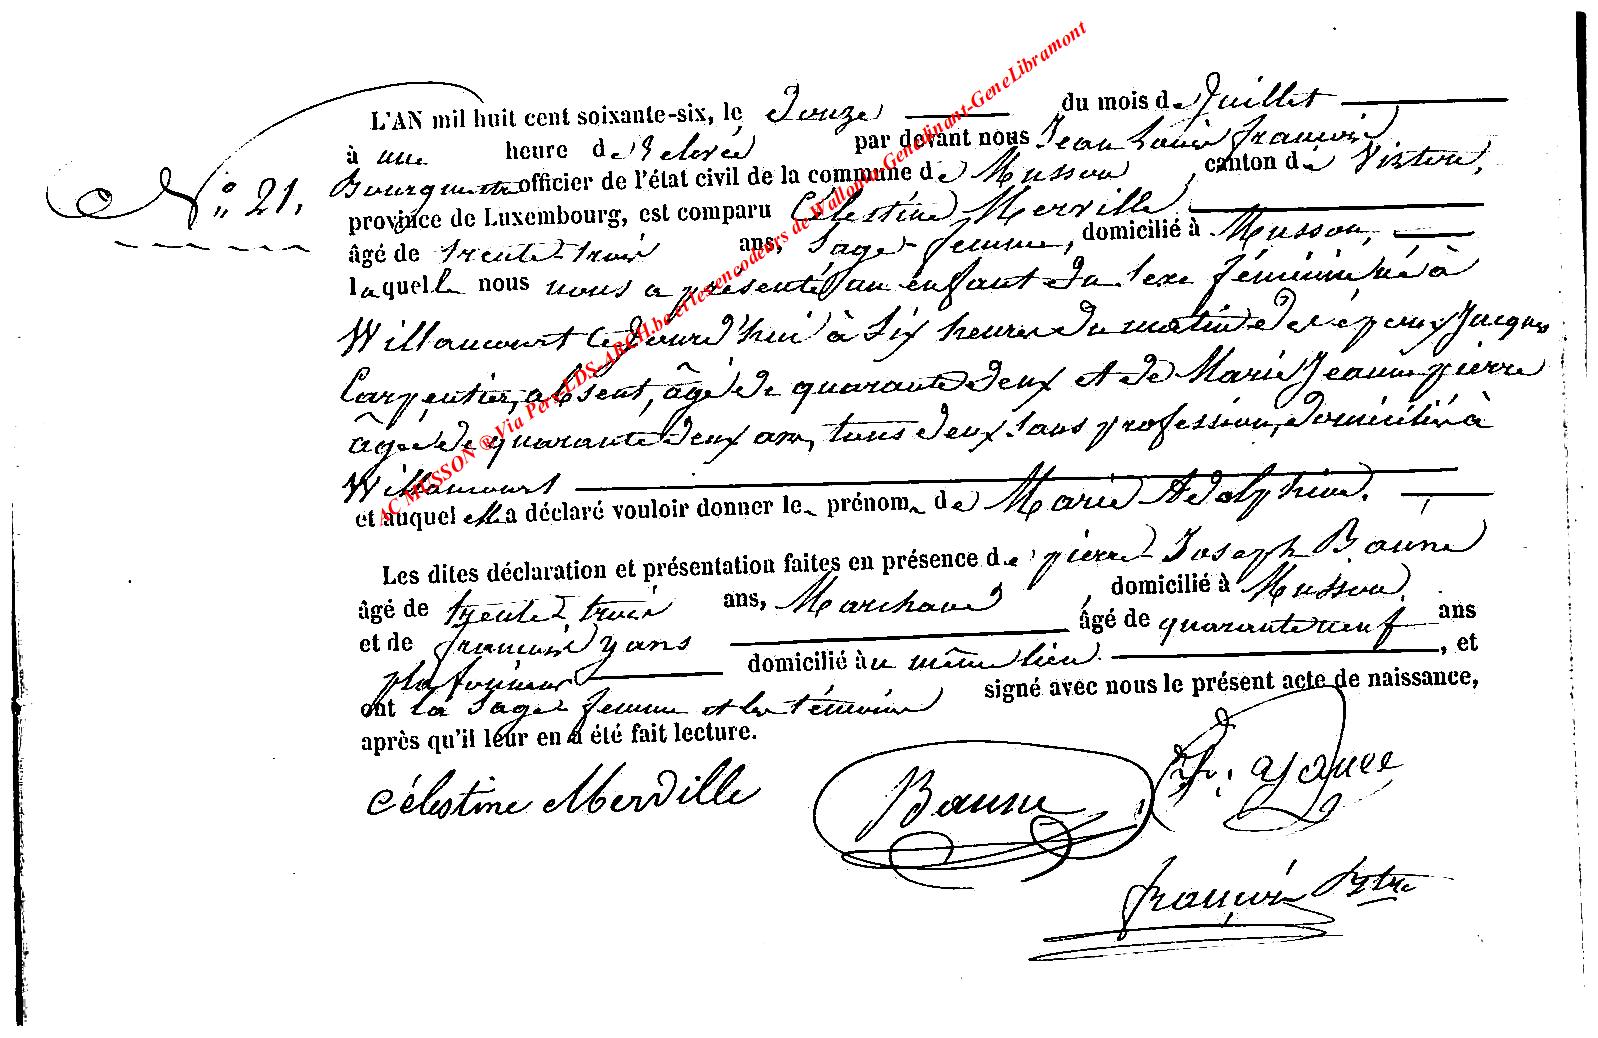 L'AN mil huit cent soixante-six, le Douze du mois de Juillet
à une heure de relevée par devant nous Jean Louis François
Bourgmestre officier de l'état civil de la commune de Musson, canton de Virton,
N° 21.
province de Luxembourg, est comparu Célestine Merville
âgé de trente-trois ans, Sage-femme, domicilié à Musson,
laquelle nous nous a présenté un enfant du sexe féminin né à
Willancourt ce jourd'hui à six heures du matin de les époux Jacques
Carpentier, absent, âgé de quarante deux et de Marie Jeanne pierre
âgée de quarante deux ans, tous deux sans profession, domiciliés à
Willancourt
et auquel elle a déclaré vouloir donner le prénom de Marie Adolphine.
Les dites déclaration et présentation faites en présence de pierre-Joseph Baune
âgé de trente-trois ans, Marchand, domicilié à Musson,
et de françois yans âgé de quarante neuf ans
plafonneur domicilié au même lieu, et
ont la sage-femme et les témoins signé avec nous le présent acte de naissance,
après qu'il leur en a été fait lecture.
Célestine Merville Baune
françois Bstre
AC MUSSON ® Via Pers-LDS-ARCH.be et les encodeurs de Wallonia-Genedinant-GeneLibramont